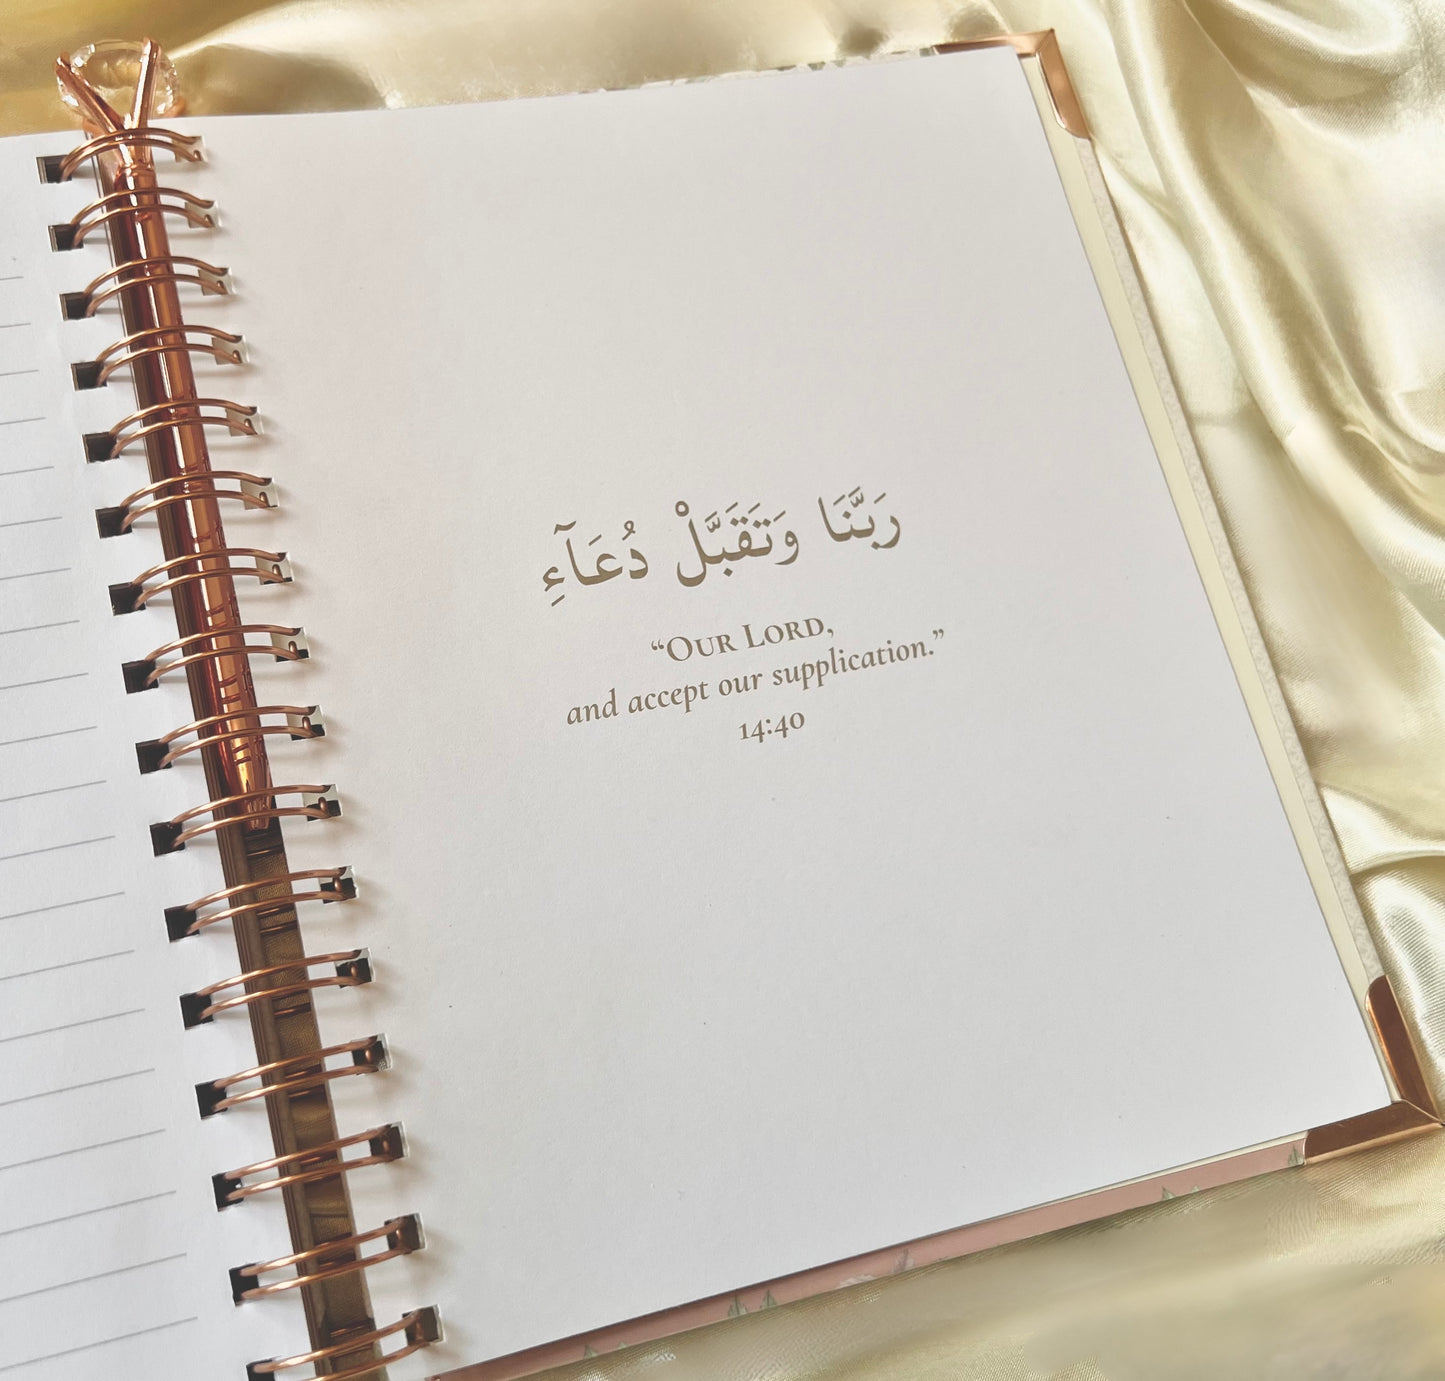 رَبَّنَا وَتَقَبَّلْ دُعَآءِ
“Our Lord,
and accept our supplication.”
14:40